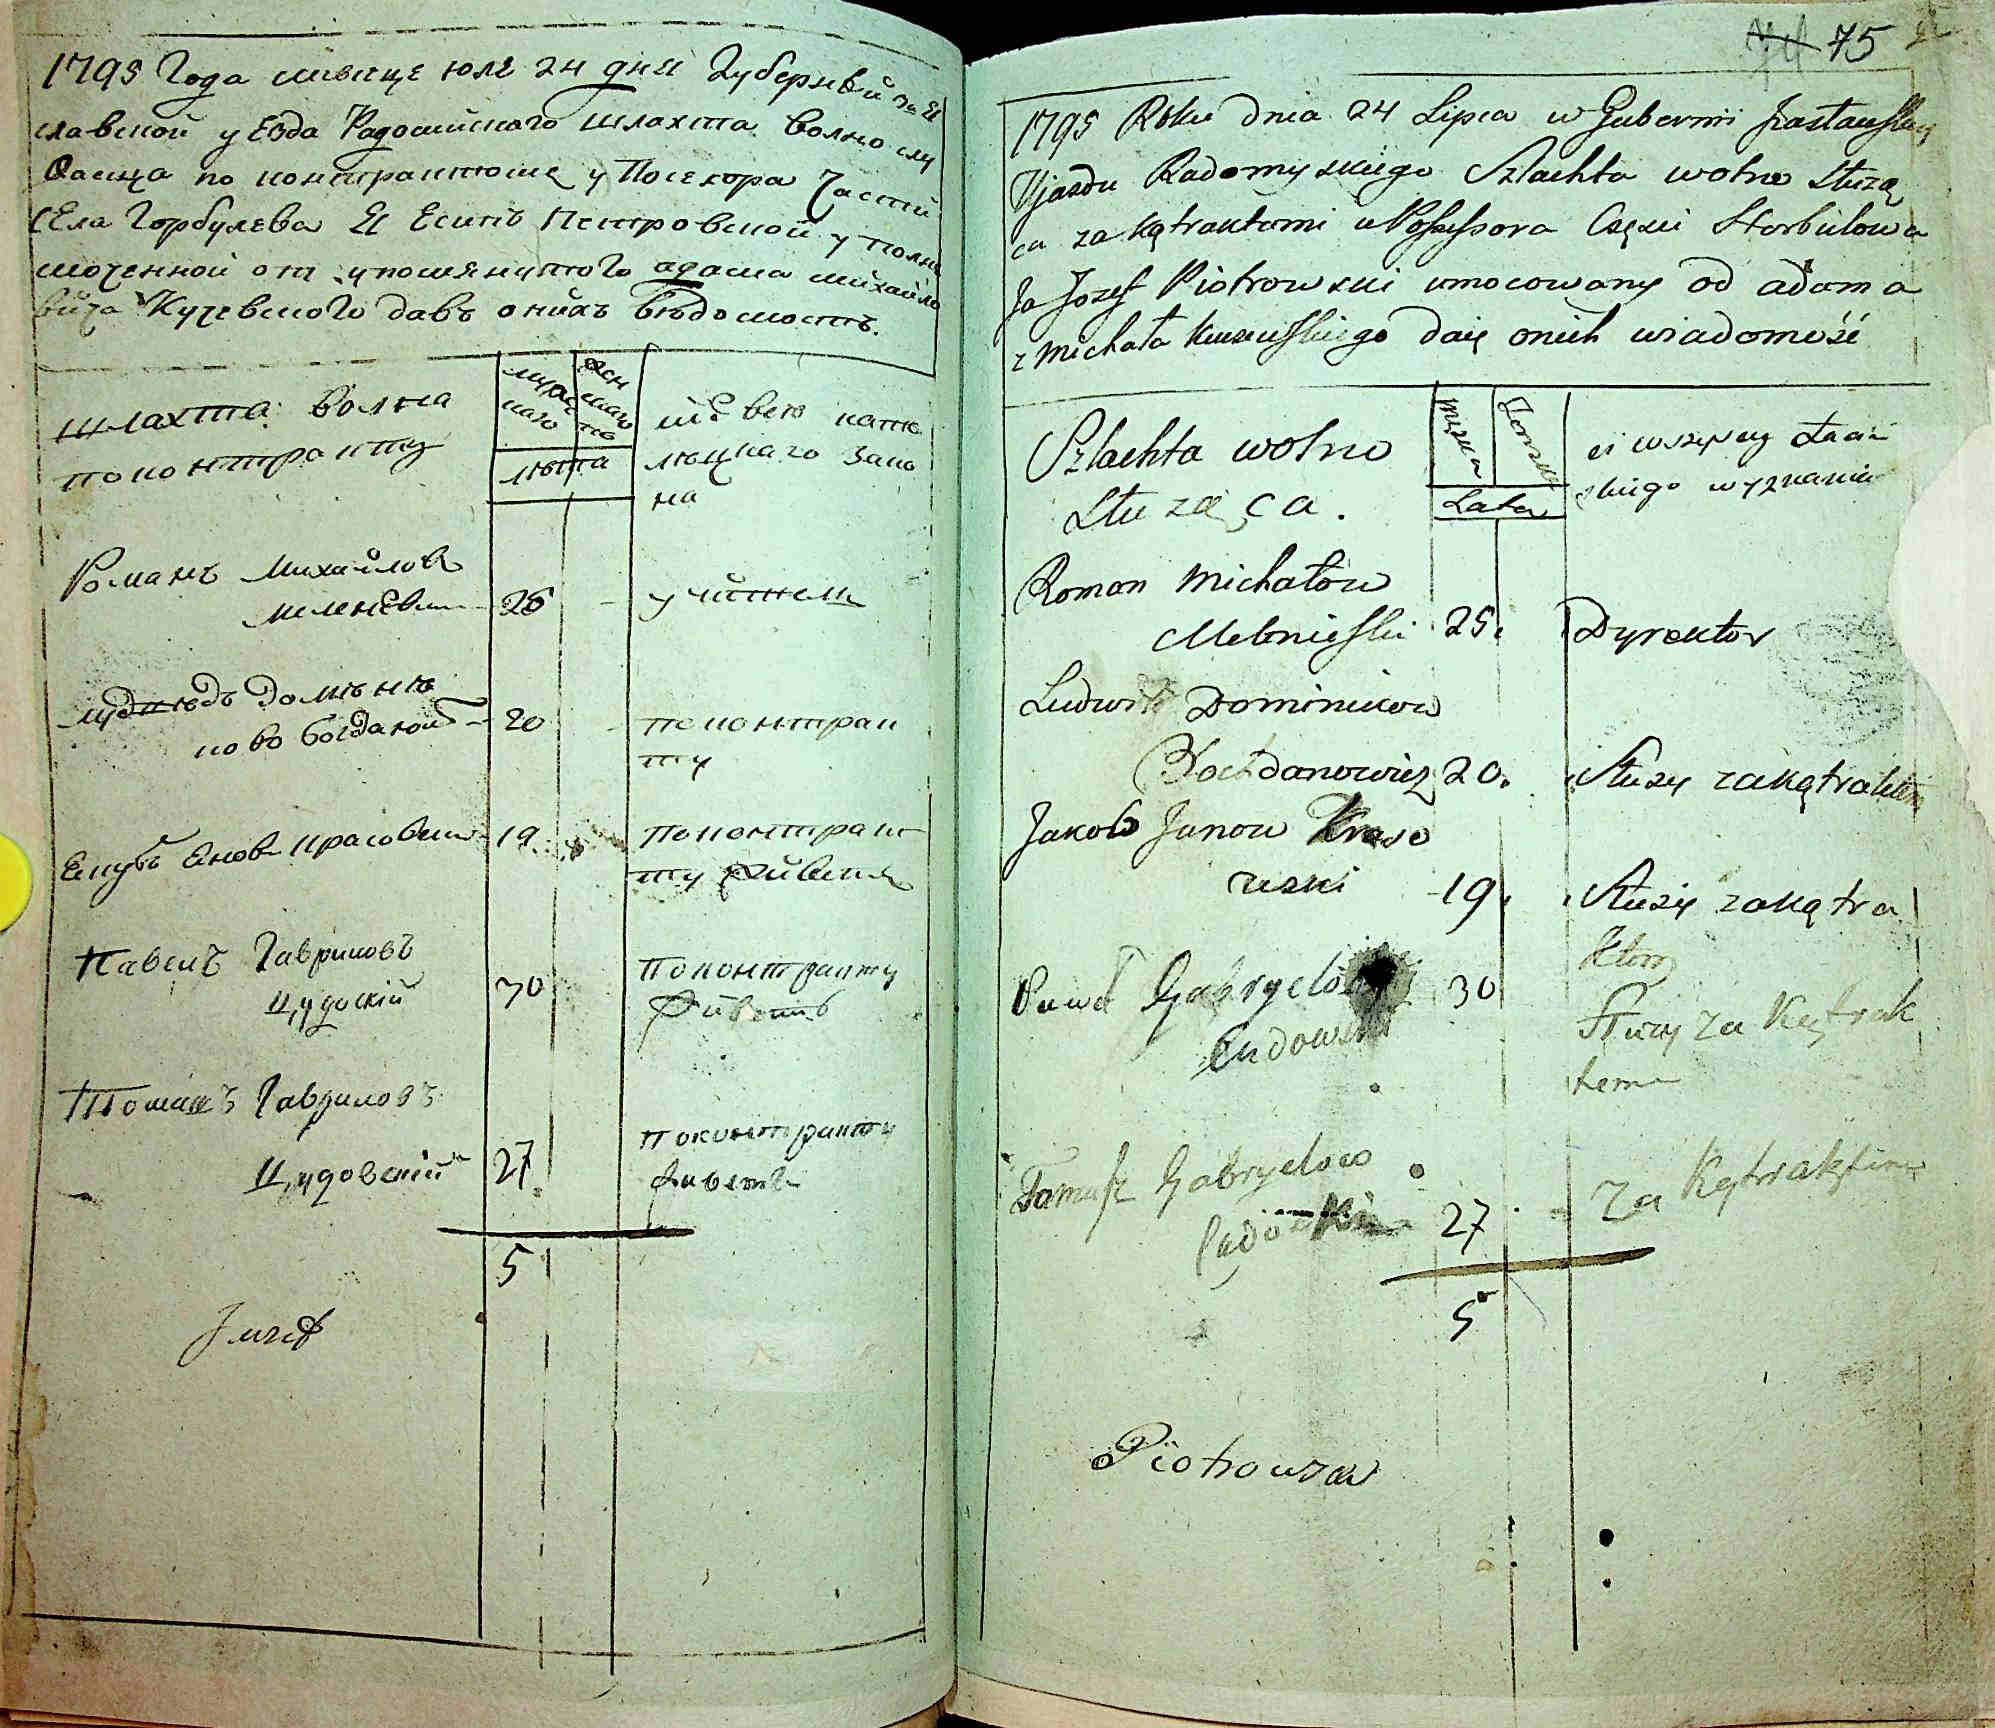 1795 Года месяце юле 24 дня Губерний
славской уезда Радомиского шлахта волно слу
по контрактоме у Посесора Части
села Горбулева Я Есипъ Петровской уполно
моченной от упомянутого адама михайло
вича Кучевского давъ онихъ вѣдомость.
шлахта волна
по контракту
мужес
каго
женс
каго
лѣта
вси като
лицкаго зако
на
Романъ Михайловъ
26
учитель
Домѣни
ково богдановъ
20
по контрак
ту
Якубъ Яновъ красовски
19
по контрак
ту живетъ
Павелъ Гавриловъ
Цудоскій
30
По контракту
живетъ
Томашъ Гавриловъ
Цудовскій
27
по контракту
живетъ
5
75
1795 Roku dnia 24 Lipca w Guberni Zasławskiey
Ujazdu Radomyskiego Szlachta wolno słuzą
ca za kątraktami u Possessora Częsci Horbulowa
Ja Jozef Piotrowski umocowany od adama
z michała Kuczewskiego daię onich wiadomość
Szlachta wolno
słuząca.
Męzka
Zenska
Lata
ci wszyscy Łaciń
skiego wyznania
Roman Michałow
Melenieski 25.
Dyrektor
Ludwik Dominikow
Bochdanowicz 20.
Służy zakątraktem
Jakob Janow Kraso
wski 19.
Służy zakątra
ktem
Paweł Gabryelow
Cudowski
30
Służy za Kątrak
tem
Tomasz Gabryelow
Cudowski
27
za Kątraktem
5
Piotrowski